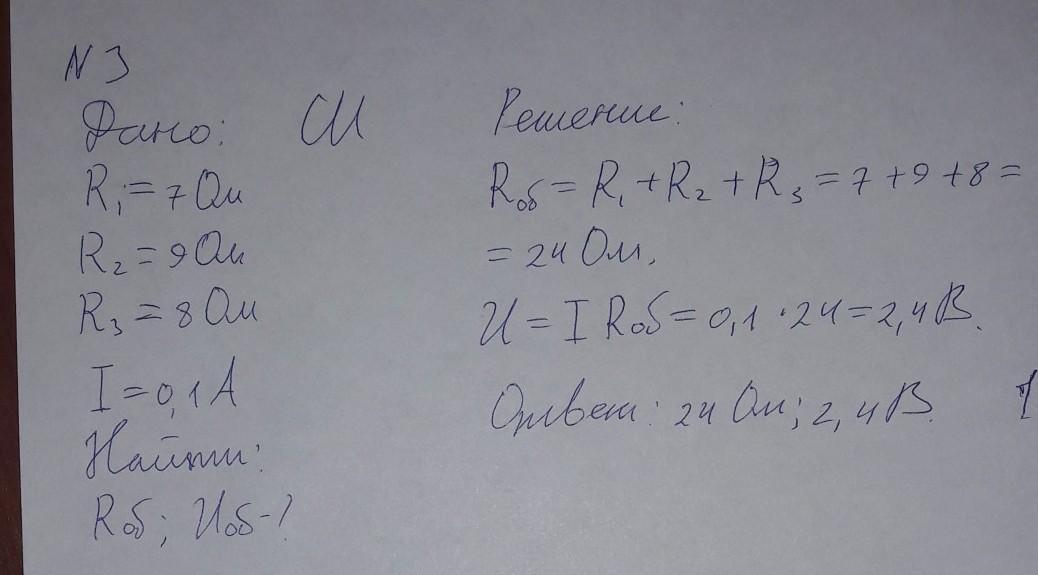 N 3
Дано: СИ
R₁ = 7 Ом
R₂ = 9 Ом
R₃ = 8 Ом
I = 0,1 А
Найти:
Rоб; Uоб - ?
Решение:
Rоб = R₁ + R₂ + R₃ = 7 + 9 + 8 =
= 24 Ом.
U = I Rоб = 0,1 · 24 = 2,4 В.
Ответ: 24 Ом; 2,4 В.